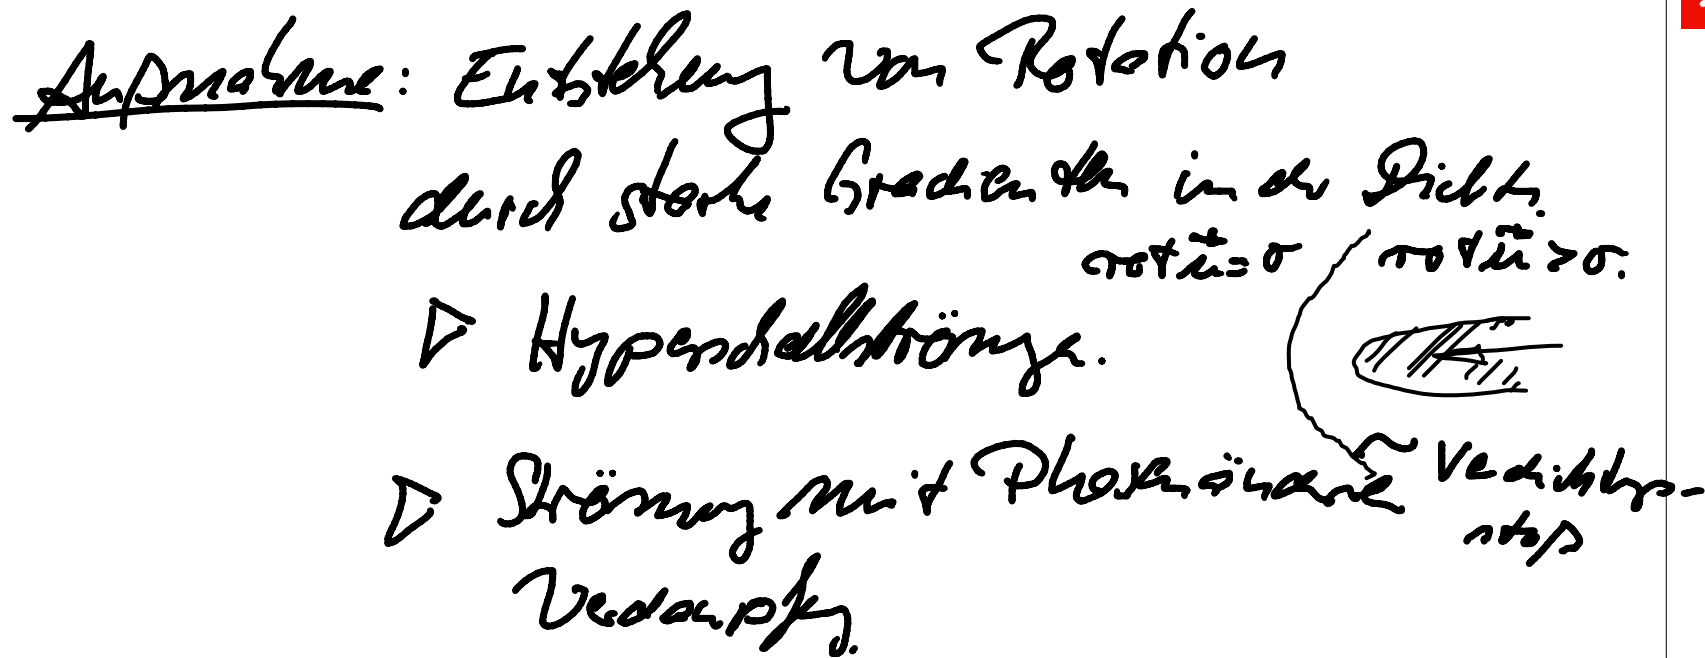 Ausnahme: Entstehung von Rotation
durch starke Gradienten in der Dichte.
rot u⃗ = 0 rot u⃗ > 0.
▷ Hyperschallströmung.
▷ Strömung mit Phasenänderung
Verdichtungs-
stoß
Verdampfung.